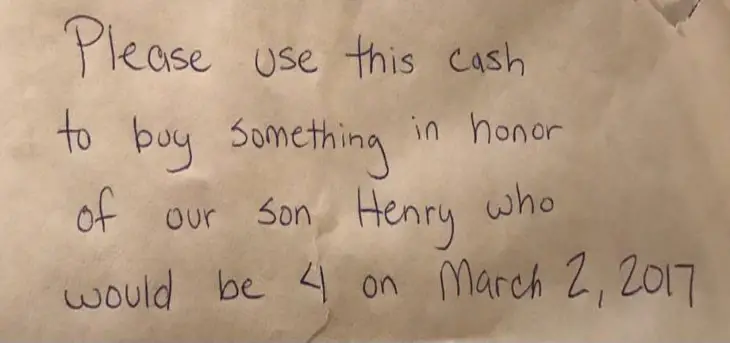 Please use this cash
to buy something in honor
of our son Henry who
would be 4 on March 2, 2017